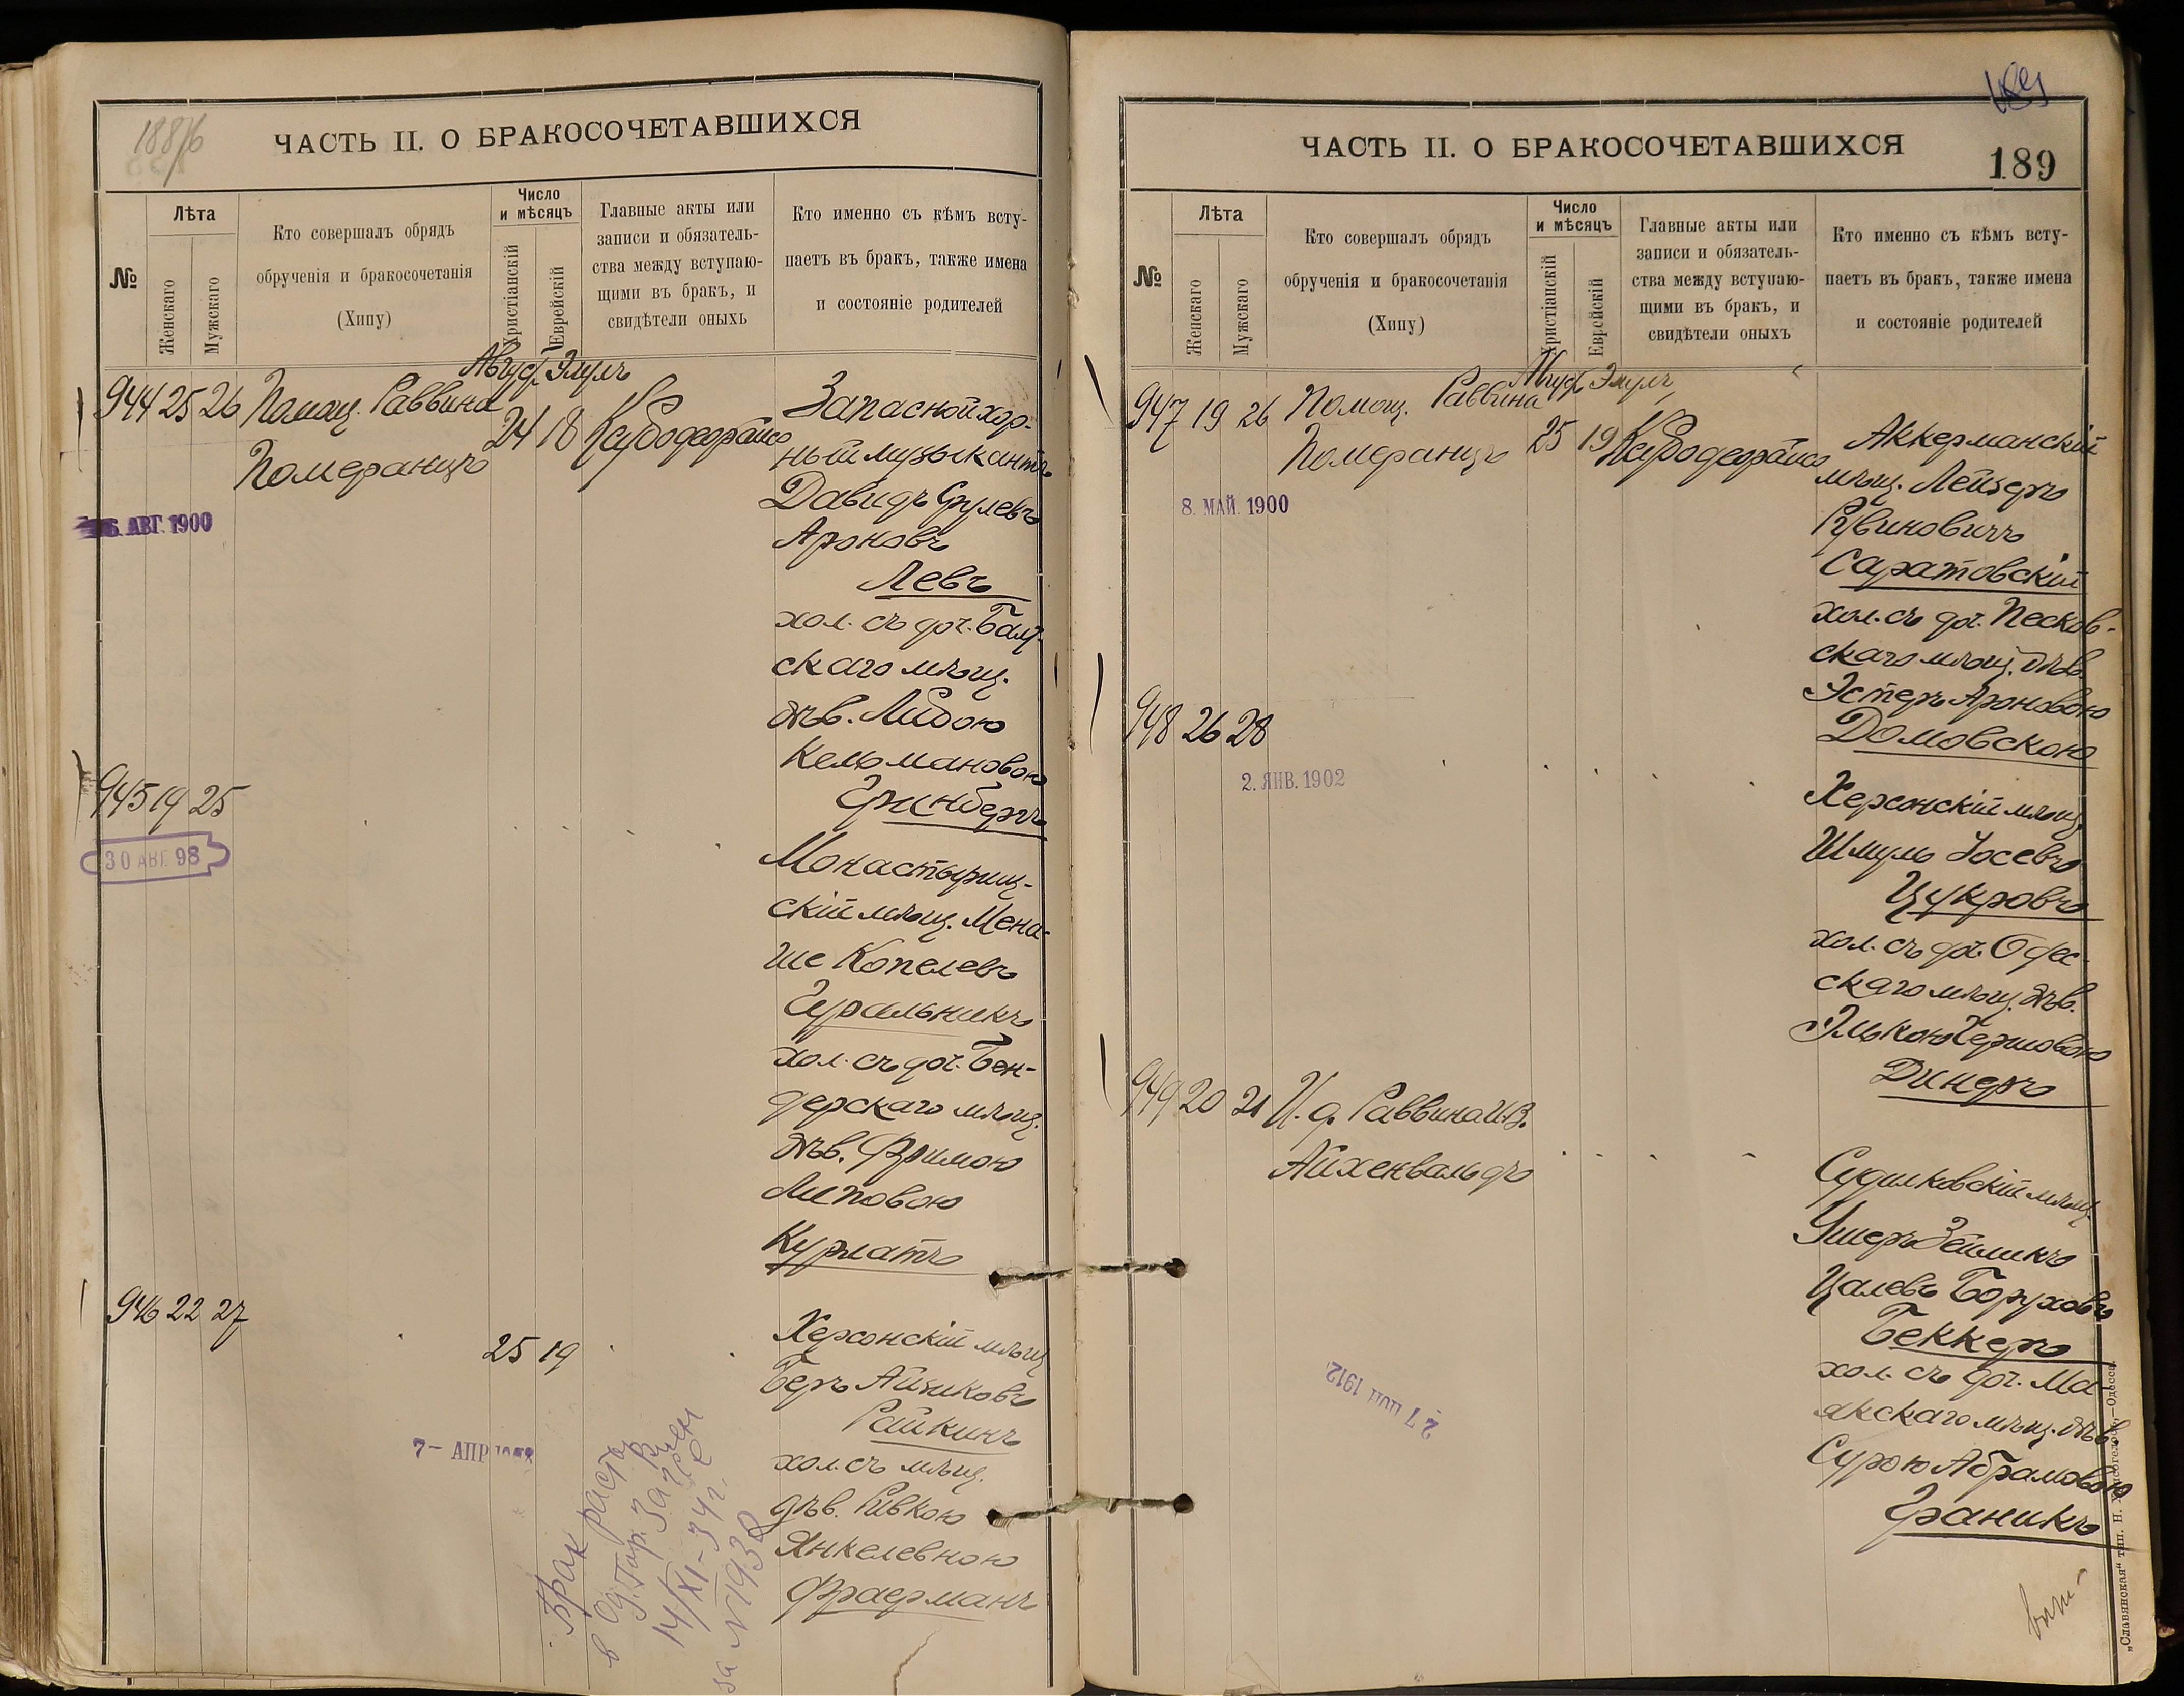 188
ЧАСТЬ II. О БРАКОСОЧЕТАВШИХСЯ
№
Лѣта
Женскаго
Мужскаго
Кто совершалъ обрядъ
обрученія и бракосочетанія
(Хипу)
Число
и мѣсяцъ
Христіанскій
Еврейскій
Главные акты или
записи и обязатель-
ства между вступаю-
щими въ бракъ, и
свидѣтели оныхъ
Кто именно съ кѣмъ всту-
паетъ въ бракъ, также имена
и состояніе родителей
Авгус. Элулъ
944 25 26 Помощ. Раввина
Померанцъ
24 18
Запасной хор-
ный музыкантъ
Давидъ Срулевъ
Ароновъ
Левъ
хол. съ доч. Балт-
скаго мѣщ.
дѣв. Лидою
Кельмановою
Гринбергъ
5. АВГ. 1900
945 19 25
30 АВГ. 98
Монастырищ-
скій мѣщ. Мена-
ше Копелевъ
Гуральникъ
хол. съ доч. Бен-
дерскаго мѣщ.
дѣв. Фримою
Липовою
Курлатъ
946 22 27
25 19
Херсонскій мѣщ
Беръ Айзиковъ
Райкинъ
хол. съ мѣщ.
дѣв. Ривкою
Янкелевною
Фраерманъ
7 – АПР
Брак расторг
в Од. Гор. Загсе
14/XI-34 г.
за № 1938
ЧАСТЬ II. О БРАКОСОЧЕТАВШИХСЯ
189
№
Лѣта
Женскаго
Мужскаго
Кто совершалъ обрядъ
обрученія и бракосочетанія
(Хипу)
Число
и мѣсяцъ
Христіанскій
Еврейскій
Главные акты или
записи и обязатель-
ства между вступаю-
щими въ бракъ, и
свидѣтели оныхъ
Кто именно съ кѣмъ всту-
паетъ въ бракъ, также имена
и состояніе родителей
Авгус. Элулъ
947 19 26 Помощ. Раввина
Померанцъ
25 19
Аккерманскій
мѣщ. Лейзеръ
Рувиновичъ
Саратовскій
хол. съ доч. Песков-
скаго мѣщ. дѣв.
Эстеръ Ароновою
Домовскою
8. МАЙ. 1900
948 26 28
2. ЯНВ. 1902
Херсонскій мѣщ.
Шмуль Іосевъ
Цукровъ
хол. съ доч. Одес-
скаго мѣщ. дѣв.
Элькою Гершовою
Динеръ
949 20 21 И. д. Раввина И.В.
Айхенвальдъ
Судилковскій мѣщ.
Ушеръ Зейликъ
Цалевъ Боруховъ
Беккеръ
хол. съ доч. Ма-
якскаго мѣщ. дѣв.
Сурою Абрамовою
Граникъ
1912
„Славянская“ тип. Н. Хрисогелосъ.—Одесса.